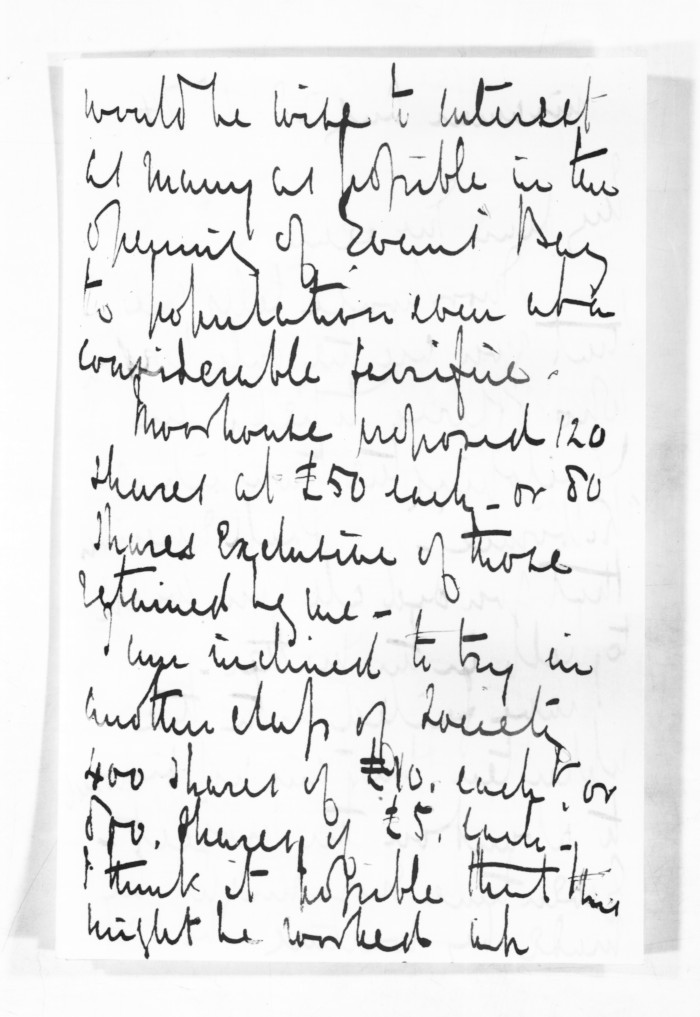 would be wise to interest
as many as possible in the
opening of Evans Bay
to population even at a
considerable sacrifice.
Moorhouse proposed 120
shares at £50 each - or 80
shares Exclusive of those
retained by me -
I am inclined to try in
another class of Society
400 shares of £10. each. or
800. shares of £5. each -
I think it possible that this
might be worked up